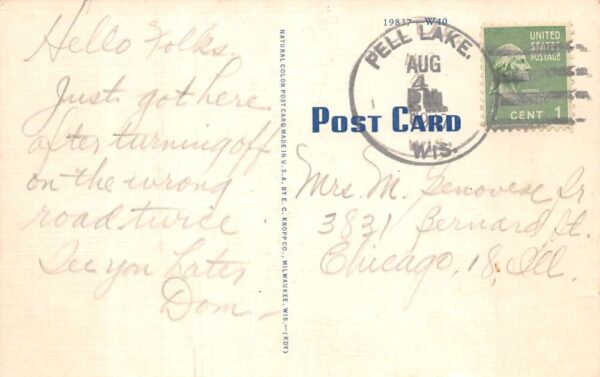 Hello Folks.
Just got here
after turning off
on the wrong
road twice
See you Later
Dom
NATURAL COLOR POST CARD MADE IN U.S.A. BY E. C. KROPP CO., MILWAUKEE, WIS.—(KDY)
19837 W40
PELL LAKE.
AUG
4
P.M.
WIS.
UNITED
STATES
POSTAGE
CENT 1
POST CARD
Mrs. M. Genovese Sr.
3831 Bernard St.
Chicago, 18, Ill.